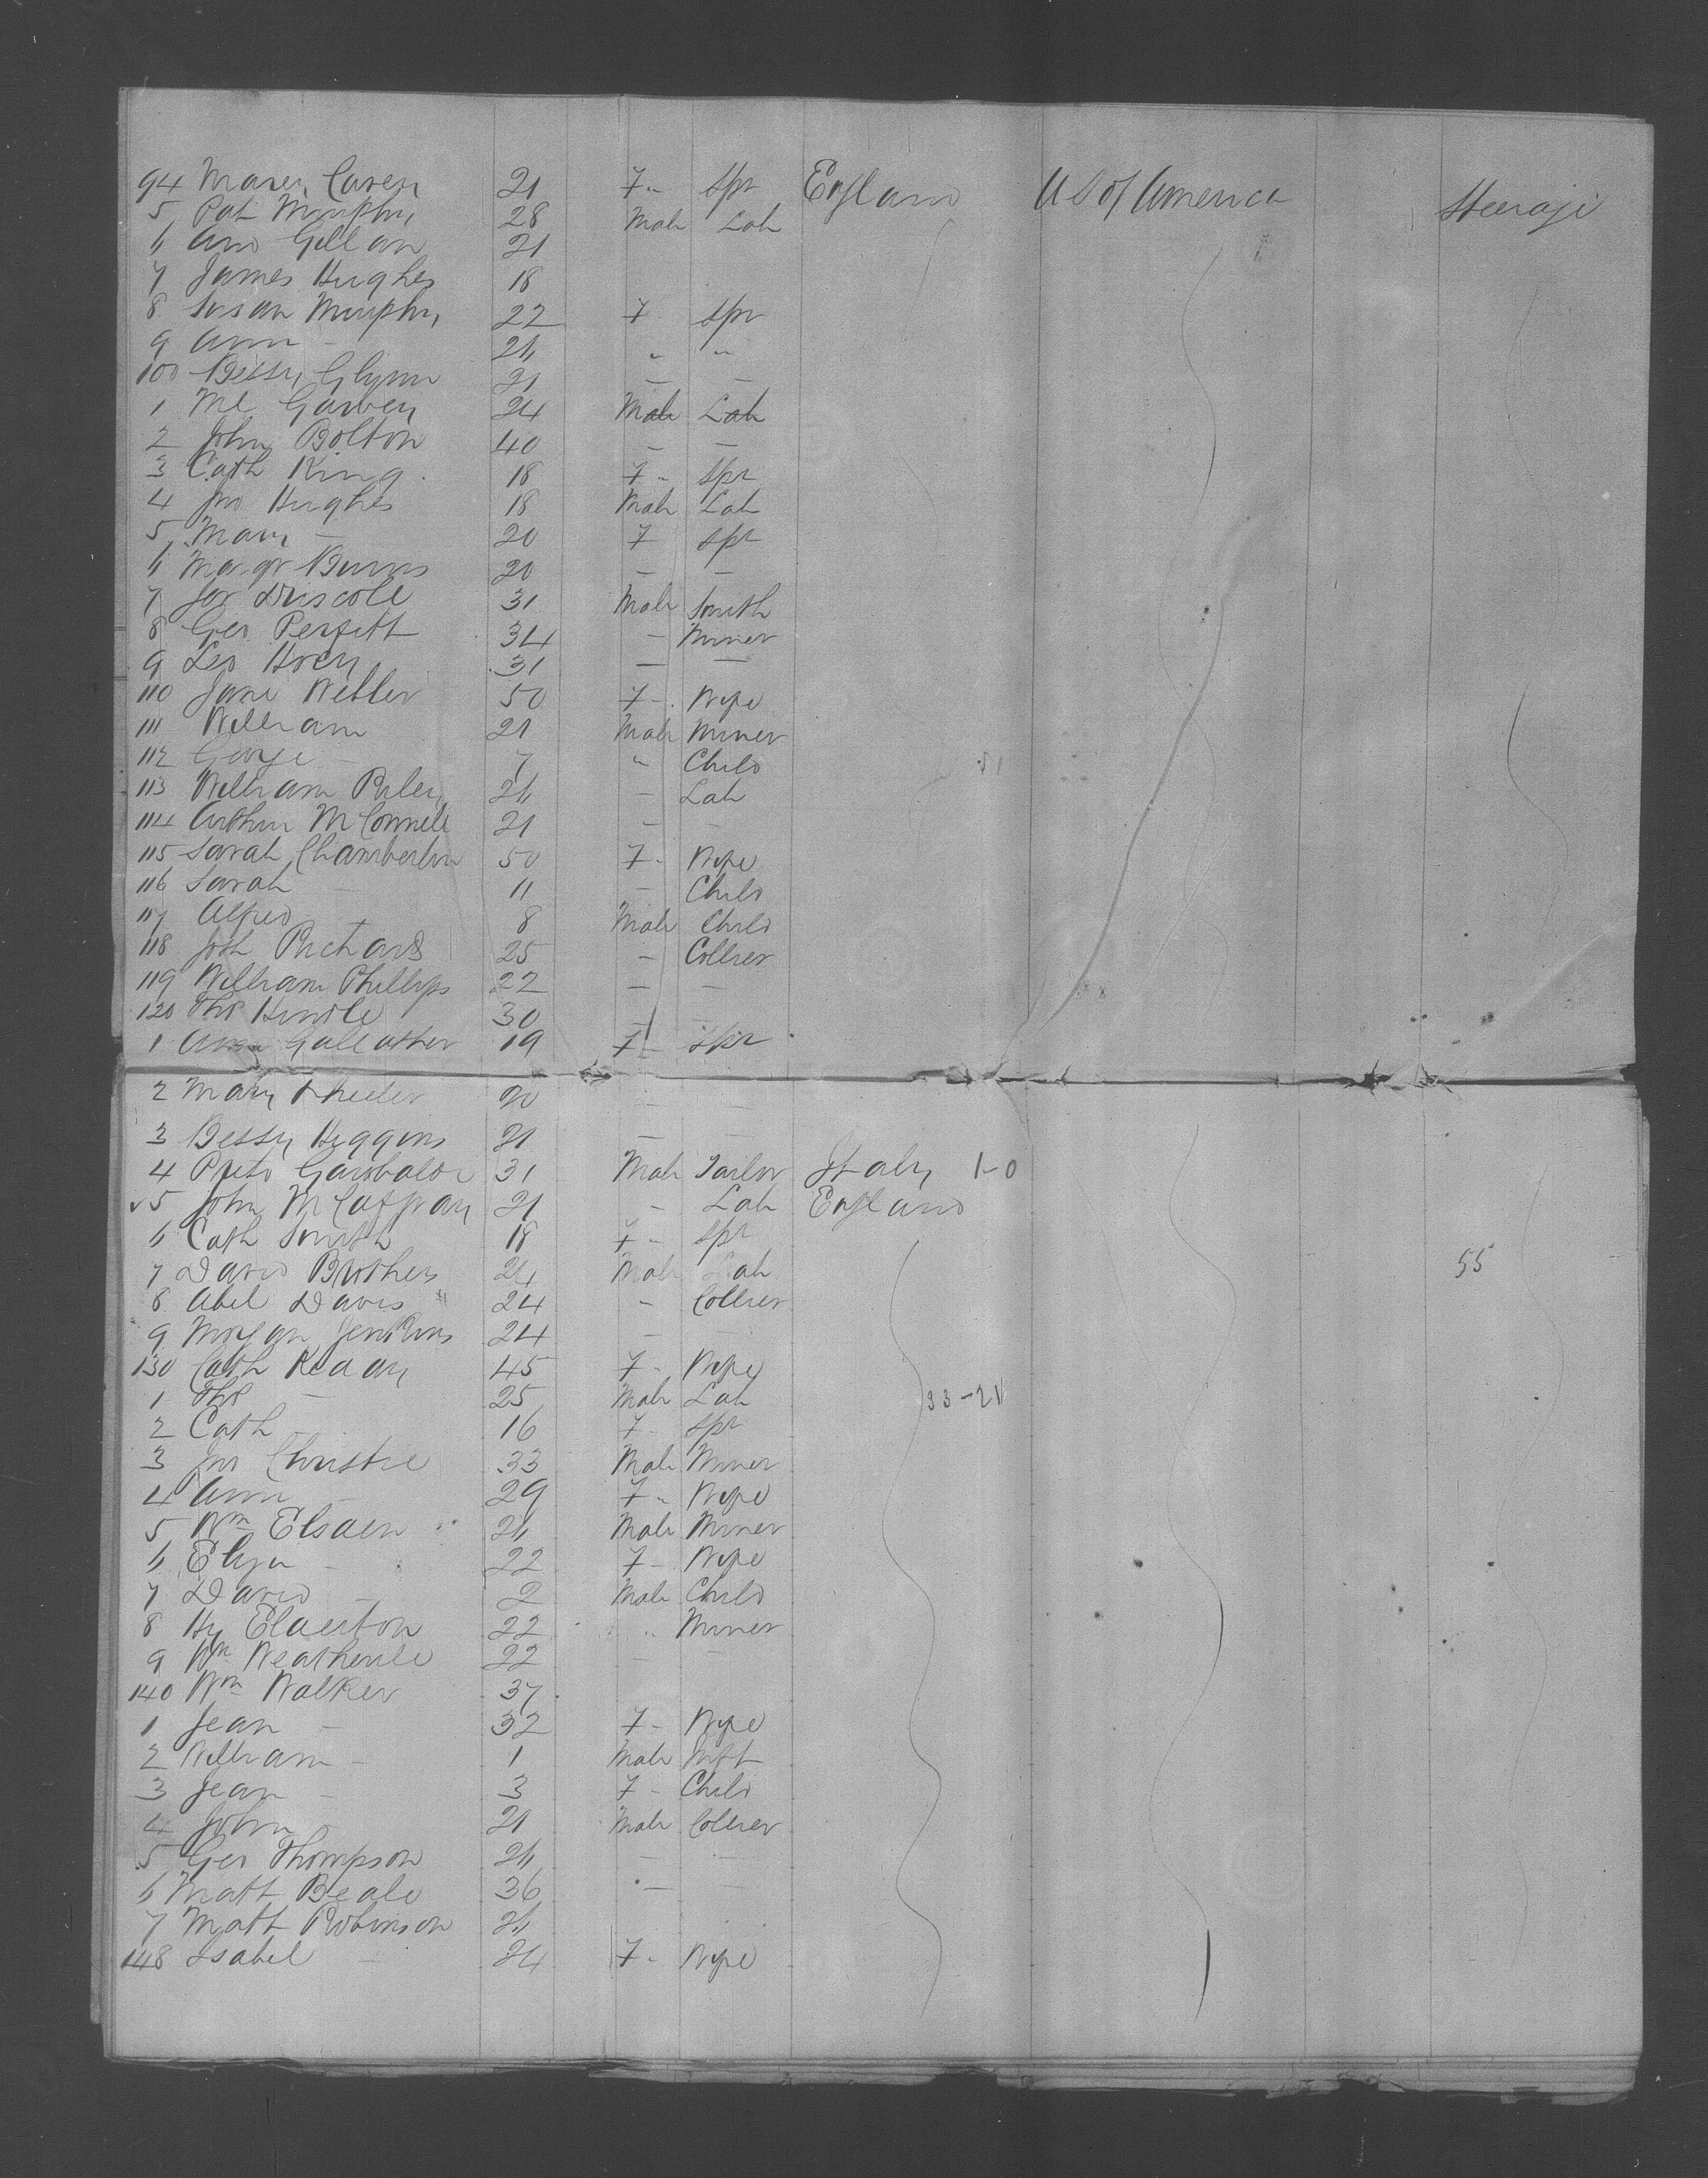 94 Mary Caren 21 F " Spr England US of America Steerage
5 Pat Murphy 28 Male Lab
6 Ann Gillan 21
7 James Hughes 18
8 Susan Murphy 22 F Spr
9 Ann — 26 " "
100 Bessy Glynn 21 — —
1 Ml Garvey 24 Male Lab
2 John Bolton 40 — —
3 Cath King 18 F " Spr
4 Jno Hughes 18 Male Lab
5 Mary — 20 F Spr
6 Margt Burns 20 — —
7 Driscole 31 Male Smith
8 Geo Perfitt 34 — Miner
9 Leo 31 — —
110 Jane Webber 50 F - Wife
111 William 21 Male Miner
112 George — 7 " Child
113 William Riley 26 — Lab
114 Arthur McConnell 21 — —
115 Sarah Chamberlin 50 F - Wife
116 Sarah — 11 — Child
117 Alfred — 8 Male Child
118 Josh Richards 25 — Collier
119 William Phillips 22 — —
120 Thos Hindle 30 — —
1 Galeather 19 F - Spr
2 Mary Wheeler 20 — —
3 Bessy Higgins 21 — —
4 Garobaldi 31 Male Tailor Italy 1-0
5 John 21 " Lab England
6 Cath Smith 18 F - Spr
7 David Brothers 24 Male Lab 55
8 Abel Davis " 24 — Collier
9 Morgan Jenkins 24 — —
130 Cath 45 F - Wife
1 Thos — 25 Male Lab 33-21
2 Cath 16 F Spr
3 Jno Christie 33 Male Miner
4 Ann — 29 F " Wife
5 Wm 26 Male Miner
6 Eliza — 22 F - Wife
7 David — 2 Male Child
8 Hy 22 " Miner
9 Wm 22 — —
140 Wm Walker 37
1 Jean — 32 F - Wife
2 William — 1 Male Inft
3 Jean — 3 F - Child
4 John 21 Male Collier
5 Geo Thompson 26 — —
6 Matt Beale 36 — —
7 Matt Robinson 26
148 Isabel — 24 F - Wife